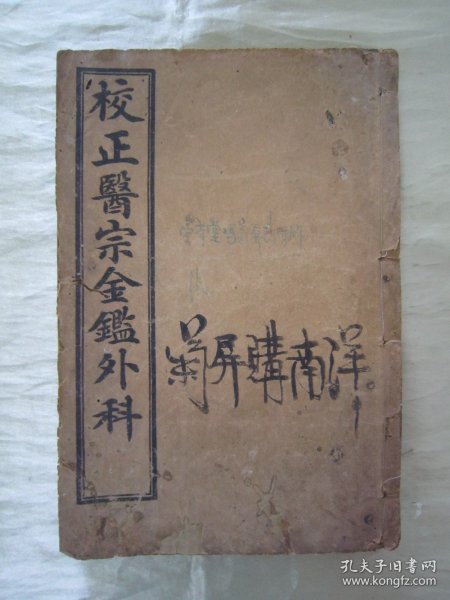 校正醫宗金鑑外科
洋南購屏菊
孔夫子旧书网
www.kongfz.com